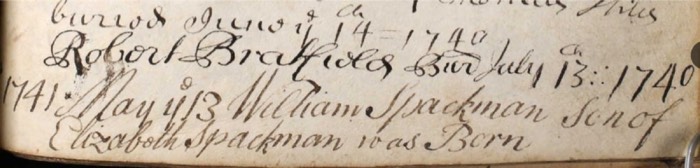 buried June ye 14th = 1740
Robert Bratfield Bur July 13th :: 1740
1741 May ye 13 William Spackman Son of
Elizabeth Spackman was Born